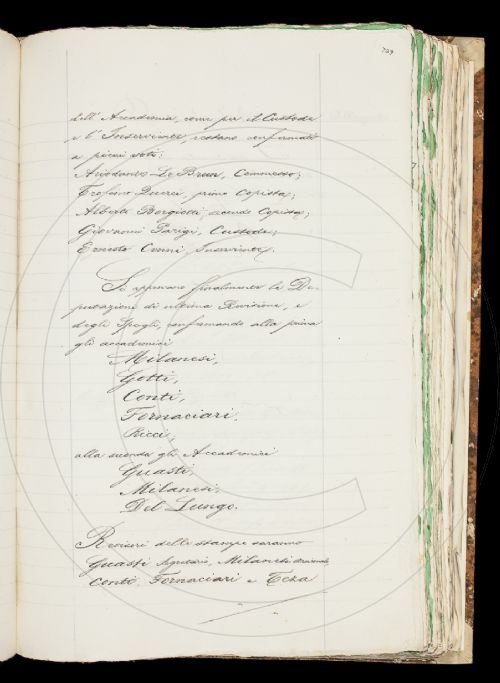 729
dell' Accademia, come per il Custode
e l' Inserviente, restano confermati
a pieni voti:
Ariodante Le Brun, Commesso;
Trofimo Querci, primo Copista;
Alberto Borgiotti, secondo Copista;
Giovanni Parigi, Custode;
Ernesto Cenni, Inserviente.
Si approvano finalmente le De-
putazioni di ultima Revisione, e
degli Spogli, confermando alla prima
gli accademici
Milanesi,
Gotti,
Conti,
Fornaciari,
Ricci;
alla seconda gli Accademici
Guasti,
Milanesi,
Del Lungo.
Revisori delle stampe saranno
Guasti Segretario, Milanesi
Conti, Fornaciari e Teza